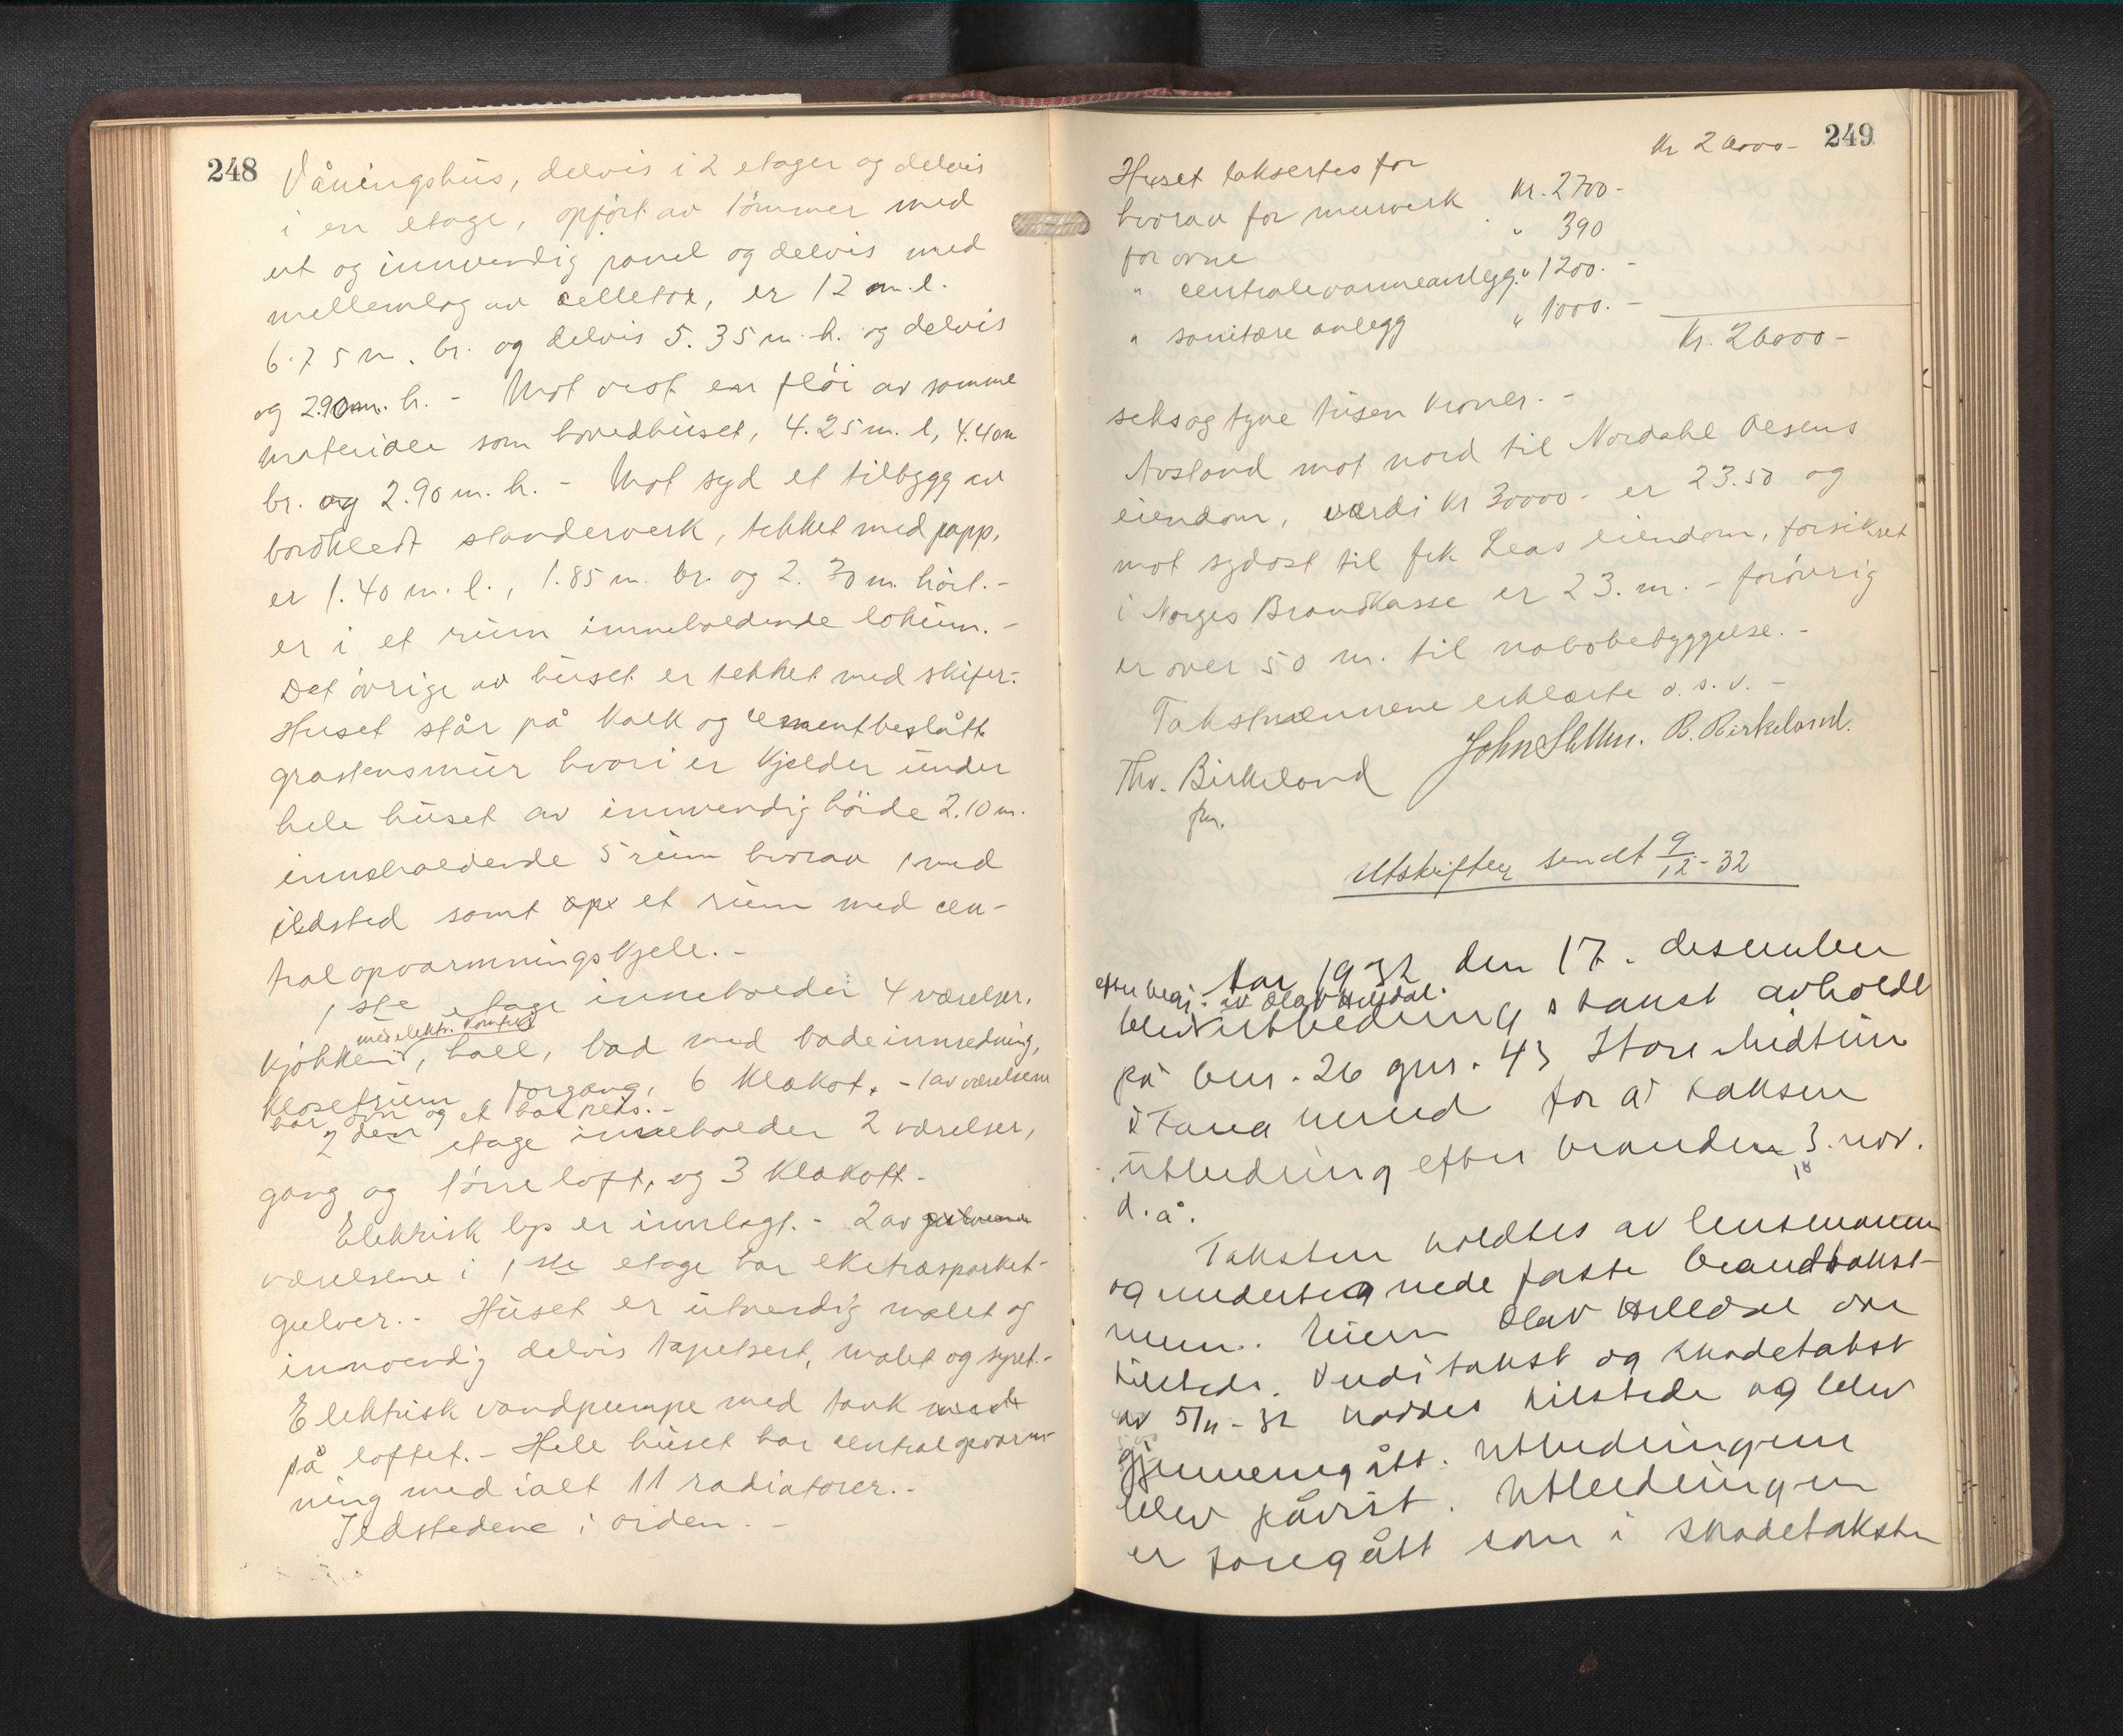 248
Våningshus, delvis i 2 etager og delvis
i en etage, opført av tømmer med
ut og innvendig panel og delvis med
mellemlag av celletex, er 12 m. l.
6.75 m. br. og delvis 5.35 m. h. og delvis
og 2.90 m. h. - Mot vest en fløi av samme
materialer som hovedhuset, 4.25 m. l, 4.40 m
br. og 2.90 m. h. - Mot syd et tilbygg av
bordkledt standerverk, tekket med papp,
er 1.40 m. l., 1.85 m. br. og 2.30 m. høit. -
er i et rum inneholdende lokum. -
Det øvrige av huset er tekket med skifer.
Huset står på kalk og cementbeslått
gråstensmur hvori er kjelder under
hele huset av innvendig høide 2.10 m.
inneholdende 5 rum hvorav 1 med
ildsted samt et rum med cen-
tralopvarmningskjele. -
1ste etage inneholder 4 værelser,
med elektr. komfyr
kjøkken, hall, bad med badeinnredning,
klosetrum, forgang, 6 klækot. - 1 av værelsene
har ovn og et har peis. -
2den etage inneholder 2 værelser,
gang og tørreloft, og 3 klækott -
Elektrisk lys er innlagt. - 2 av
værelsene i 1ste etage har eketræsparket-
gulver. - Huset er utvendig malet og
innvendig delvis tapetsert, malet og syret. -
Elektrisk vandpumpe med tank
på loftet. - Hele huset har centralopvarm-
ning med ialt 11 radiatorer. -
Ildstedene i orden. -
249
Huset taksertes for kr 26000 -
hvorav for murverk kr. 2700 -
for ovne " 390
" centralevarmeanlegg " 1200. -
" sanitære anlegg " 1000. -
Kr. 26000 -
seksogtyve tusen kroner. -
Avstand mot nord til Nordahl Olsens
eiendom, værdi kr 30000 - er 23.50 og
mot sydost til frk Leas eiendom, forsikret
i Norges Brandkasse er 23. m. - forøvrig
er over 50 m. til nabobebyggelse. -
Takstmennene erklærte o. s. v. -
Thv. Birkeland John R. Birkeland.
fm.
Utskrifter sendt 9/12-32
Aar 1932 den 17. desember
efter begj. av Olav Hilldal.
blev utbedringstakst avholdt
på bnr. 26 gnr. 43 Store Midttun
i Fana herred for at taksere
utbedring efter branden 3. nov.
d. å.
Taksten holdtes av lensmannen
og undertegnede faste brandtakst-
menn. Eieren Olav Hilldal var
tilstede. Verditakst og skadetakst
av 5/11-32 haddes tilstede og blev
gjennemgått. Utbedringene
blev påvist. Utbedringen
er foregått som i skadetaksten